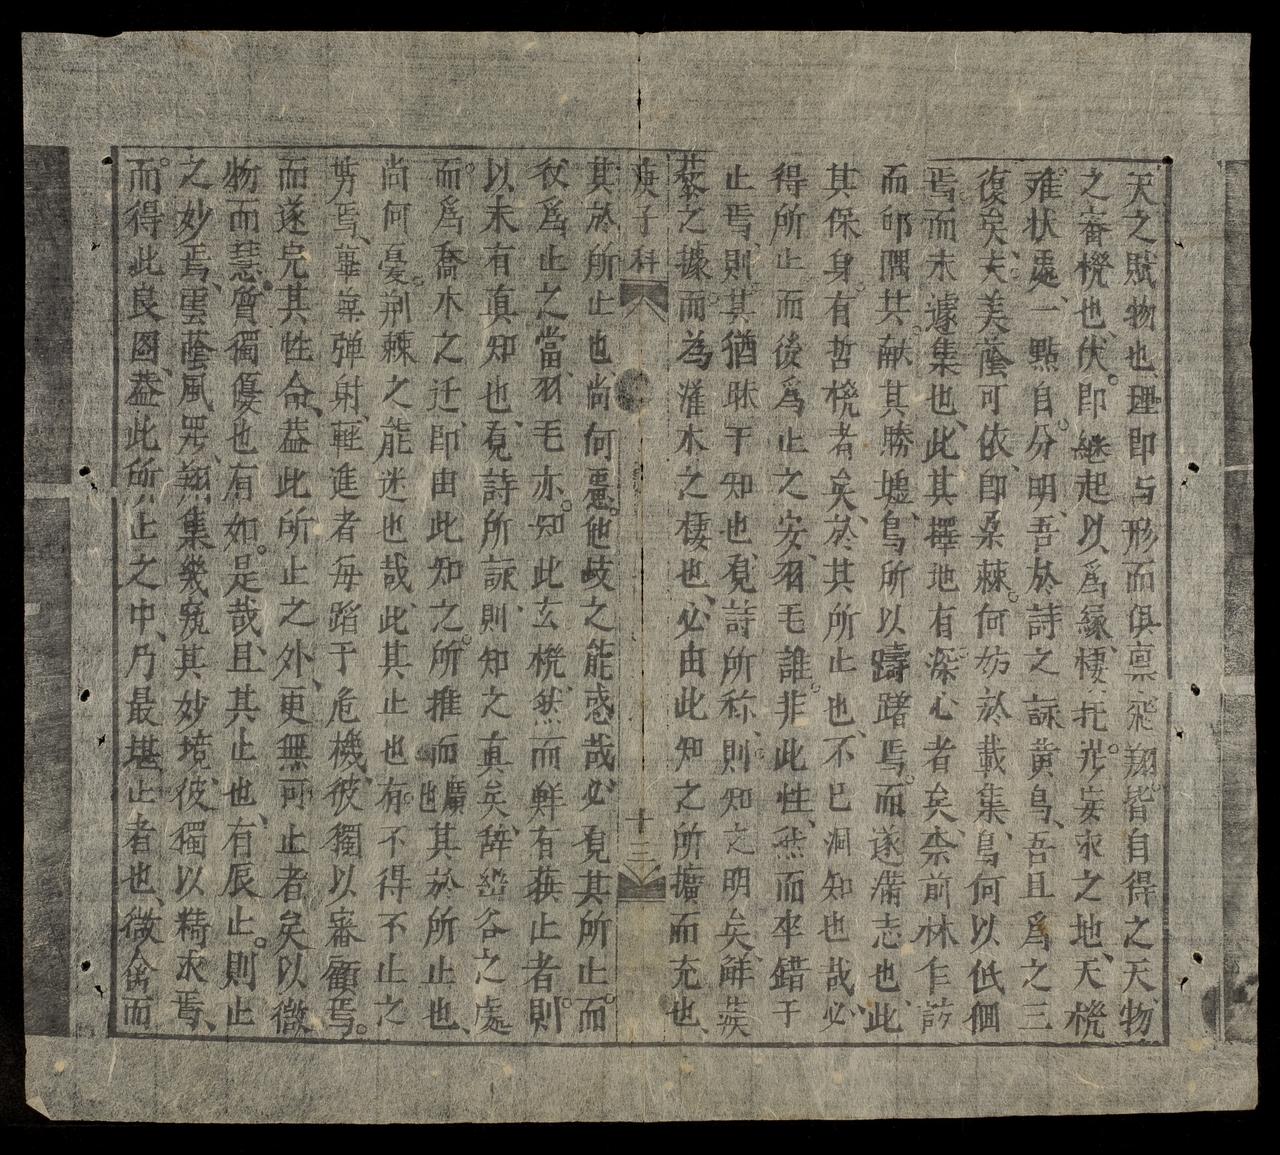 天之賦物也、理即与形而俱禀、飛翔皆自得之天、物
之審機也、伏即継起以爲緣、棲托光妄求之地、天機
难状處、一點自分明、吾於詩之詠黄鳥、吾且爲之三
復矣、夫美蔭可依、即桑棘何妨於載集、鳥何以低徊
焉而未遽集也、此其擇地有深心者矣、柰前林乍訪
而邱隅共献其勝墟、鳥所以躊躇焉而遂滿志也、此
其保身有哲機者矣、於其所止也、不已洞知也哉、必
得所止而後爲止之安、羽毛誰非此性、然而卒錯于
止焉、則其猶昧于知也、覔詩所称、則知之明矣、鮮蒺
蔾之據而为灌木之棲也、必由此知之所擴而充也、
庚子科 十三
其於所止也、尚何憂他歧之能惑哉、必覔其所止而
後爲止之當、羽毛亦知此玄機、然而鮮有藐止者、則
以未有真知也、覔詩所詠、則知之真矣、辞幽谷之處
而爲喬木之迁、即由此知之所推而廣也、其於所止也、
尚何憂荊棘之能迷也哉、此其止也、有不得不止之
勢焉、莘莘弹射、輕進者每蹈于危機、彼獨以審顧焉
而遂完其性命、葢此所止之外、更無可止者矣、以微
物而慧質獨優也有如是哉、且其止也、有辰止、則止
之妙焉、雲蔭風
翔集、幾窺其妙境、彼獨以精求焉、
而得此良圖、葢此所止之中、乃最堪止者也、微禽而